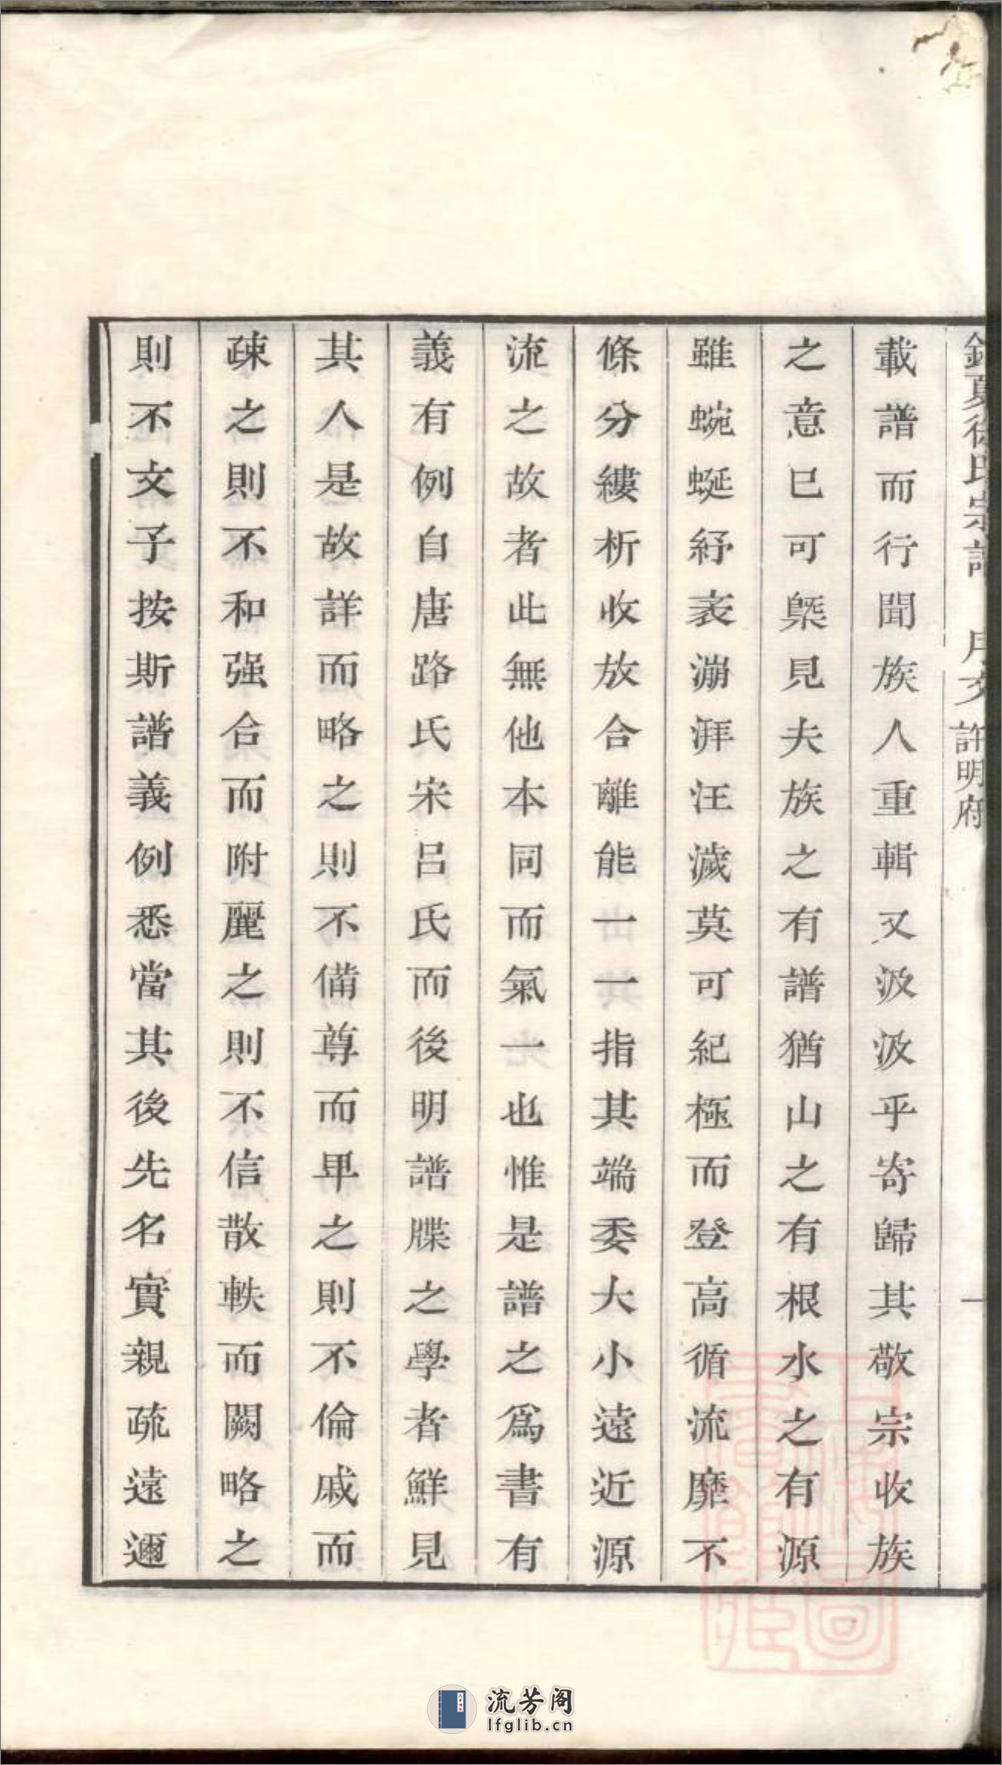 夏徐氏宗譜 序文 許明府 一
載譜而行聞族人重輯又汲汲乎寄歸其敬宗收族
之意已可槩見夫族之有譜猶山之有根水之有源
雖蜿蜒紆袤㴸湃汪濊莫可紀極而登高循流靡不
條分縷析收放合離能一一指其端委大小遠近源
流之故者此無他本同而氣一也惟是譜之爲書有
義有例自唐路氏宋呂氏而後明譜牒之學者鮮見
其人是故詳而略之則不備尊而卑之則不倫戚而
疎之則不和强合而附麗之則不信散軼而闕略之
則不文子按斯譜義例悉當其後先名實親疏遠邇
流芳阁
lfglib.cn